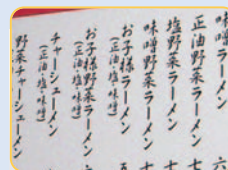 味噌ラーメン 六
正油野菜ラーメン 七
塩野菜ラーメン 七
味噌野菜ラーメン 七
お子様ラーメン 五
(正油・塩・味噌)
お子様野菜ラーメン
(正油・塩・味噌)
チャーシューメン
(正油・塩・味噌)
野菜チャーシューメン